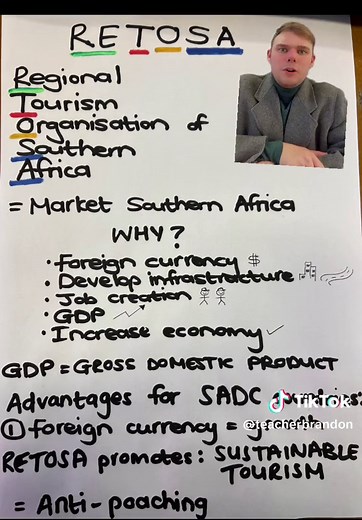 RETOSA
Regional
Tourism
Organisation of
Southern
Africa
= Market Southern Africa
WHY?
• Foreign currency $
• Develop infrastructure
• Job creation
• GDP
• Increase economy ✓
GDP = GROSS DOMESTIC PRODUCT
Advantages for SADC
TikTok
① foreign currency =
@teacherbrandon
RETOSA promotes: SUSTAINABLE
TOURISM
= Anti-poaching